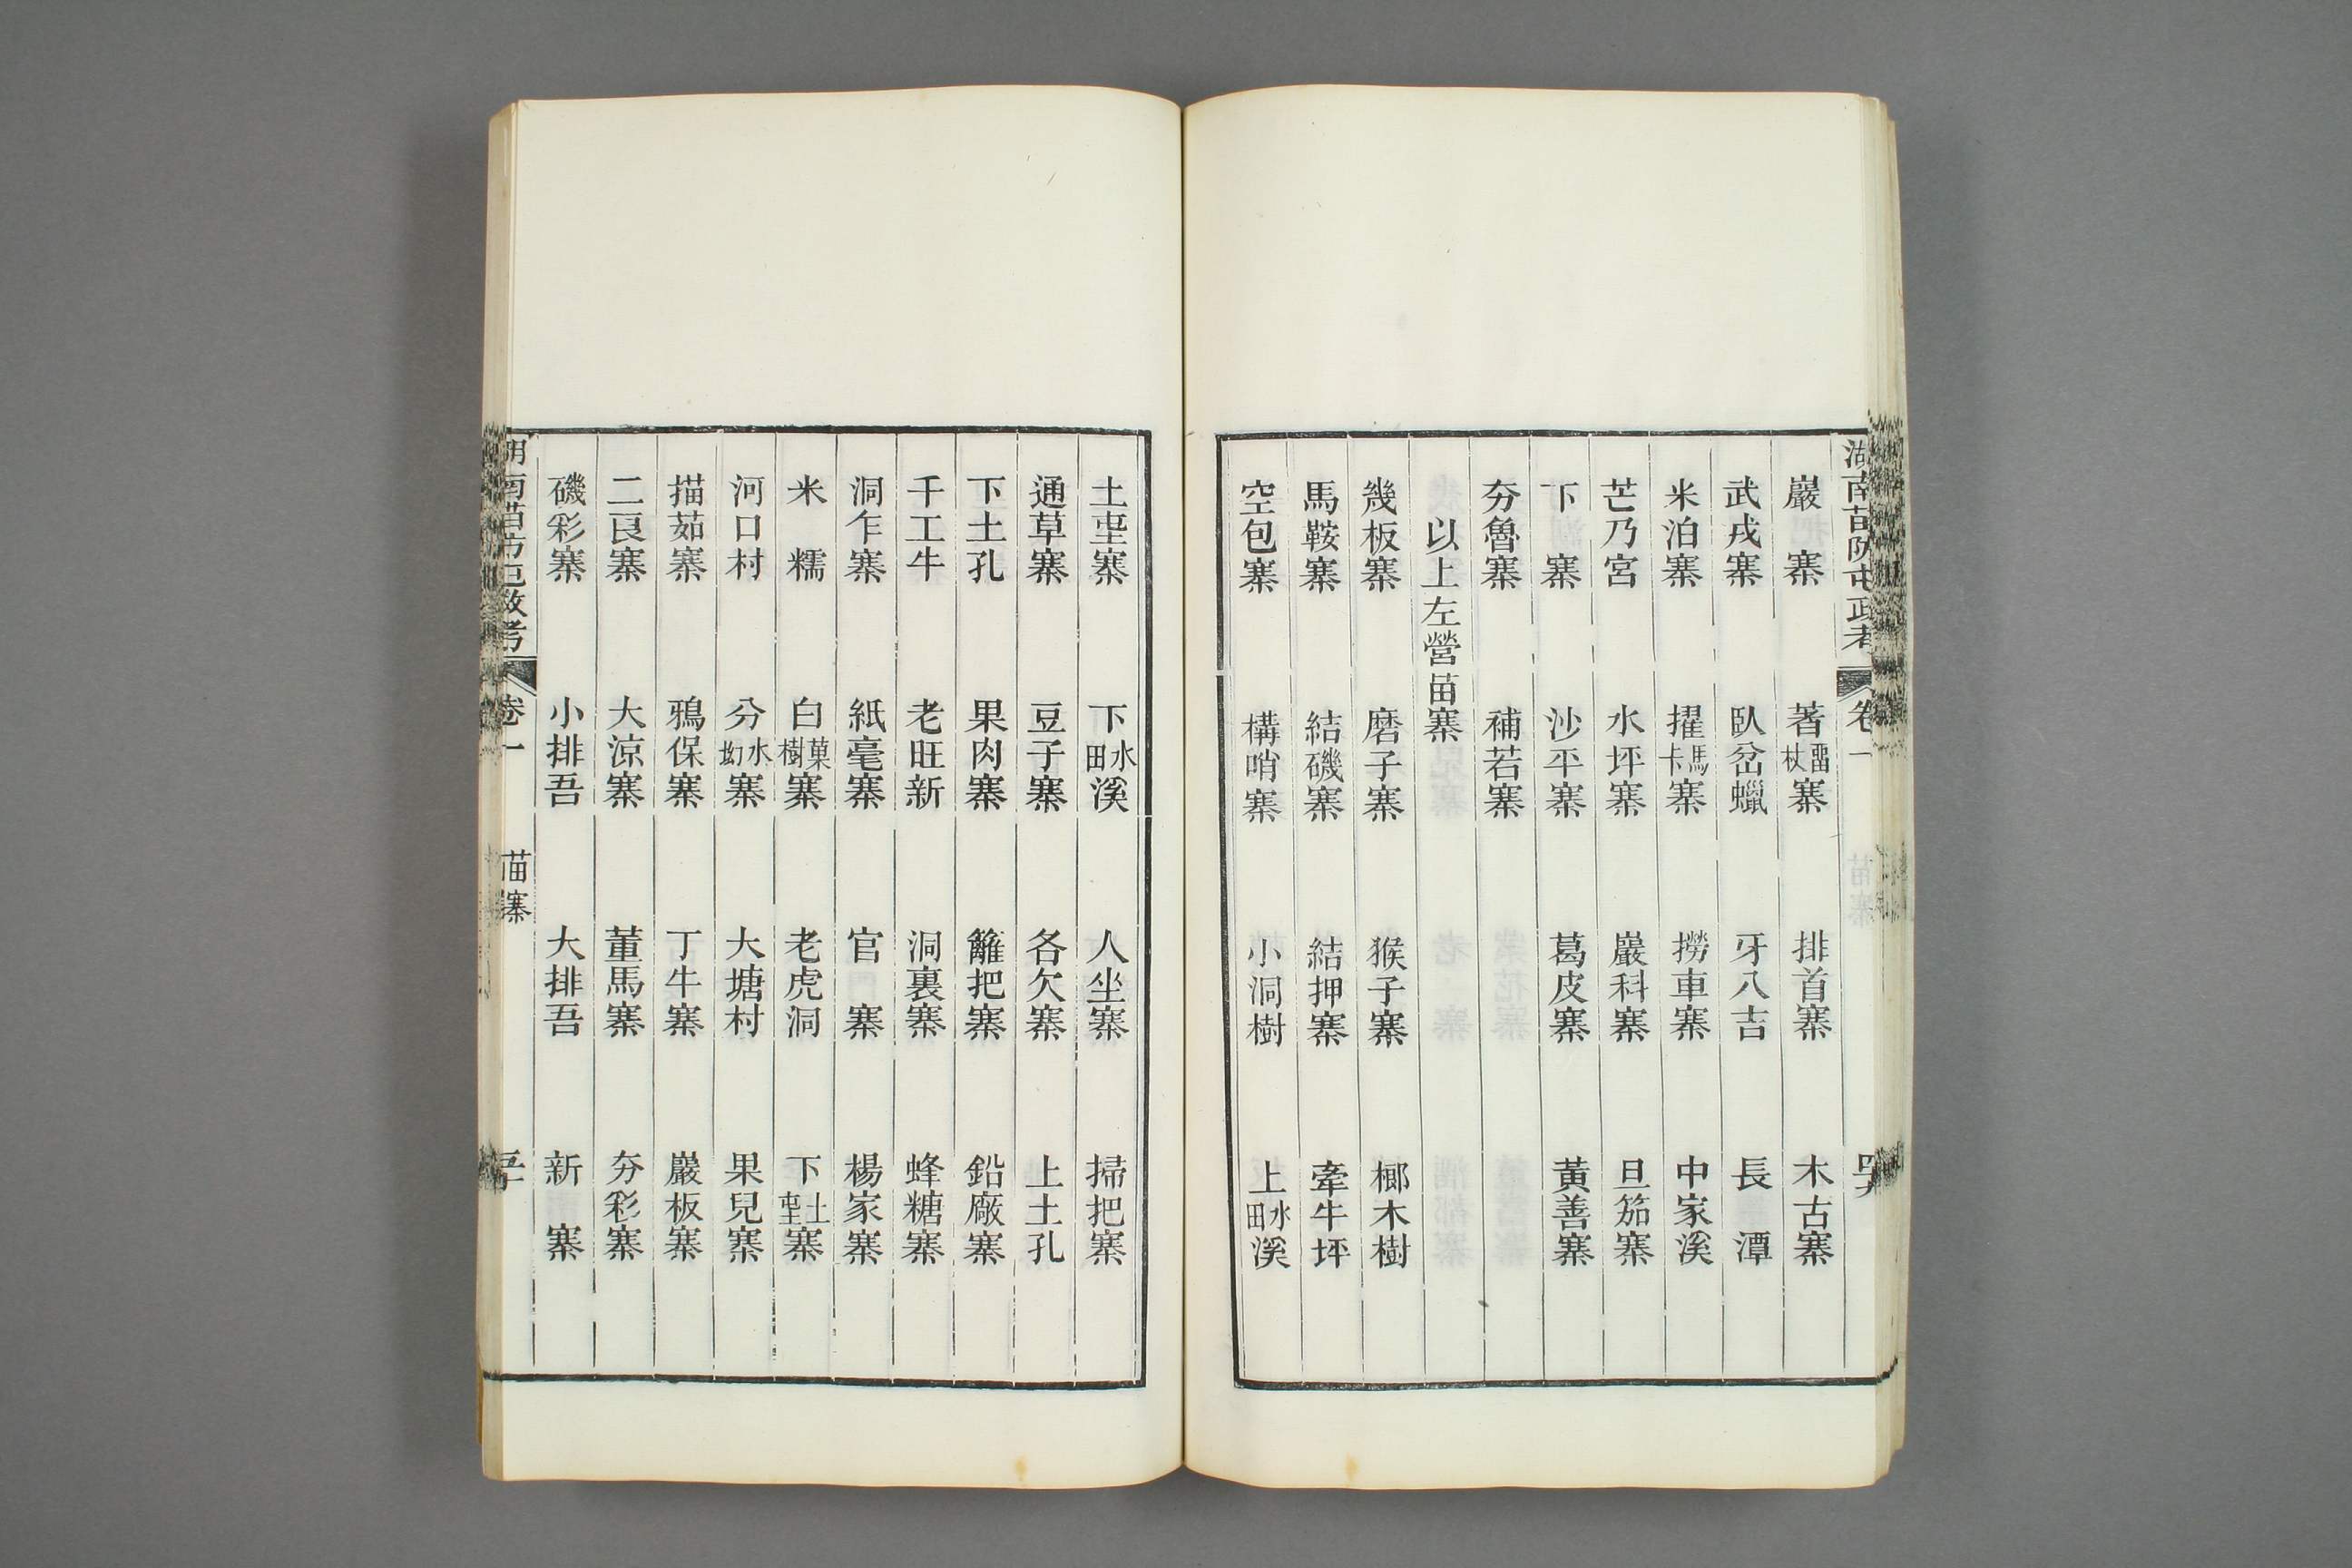 湖南苗防屯政考 卷一
巖寨 著雷杖寨 排首寨 木古寨
武戎寨 臥岔蠟 牙八吉 長潭
米泊寨 擢馬卡寨 撈車寨 中家溪
芒乃宮 水坪寨 巖科寨 旦笳寨
下寨 沙平寨 葛皮寨 黃善寨
夯魯寨 補若寨
以上左營苗寨
幾板寨 磨子寨 猴子寨 榔木樹
馬鞍寨 結磯寨 結押寨 牽牛坪
空包寨 構哨寨 小洞樹 上水田溪
土坙寨 下水田溪 人坐寨 掃把寨
通草寨 豆子寨 各欠寨 上土孔
下土孔 果肉寨 籬把寨 鉛廠寨
千工牛 老旺新 洞裏寨 蜂糖寨
洞乍寨 紙毫寨 官寨 楊家寨
米糯 白菓樹寨 老虎洞 下土坙寨
河口村 分水㘭寨 大塘村 果兒寨
描茹寨 鴉保寨 丁牛寨 巖板寨
二良寨 大涼寨 董馬寨 夯彩寨
磯彩寨 小排吾 大排吾 新寨
湖南苗防屯政考 卷一 苗寨